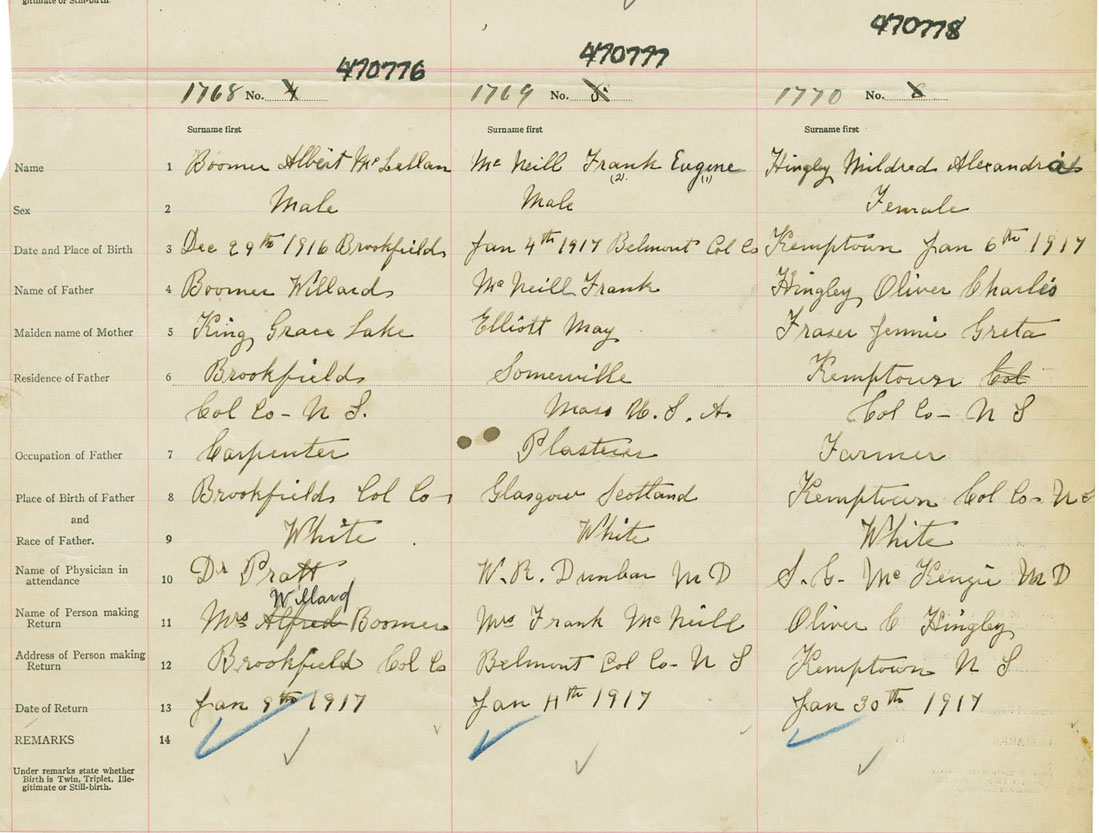 gitimate or Still-birth.
470776 470777 470778
1768 No. 4 1769 No. 5 1770 No. 6
Surname first Surname first Surname first
Name 1 Boomer Albert McLellan McNeill Frank (2) Eugene (1) Hingley Mildred Alexandria
Sex 2 Male Male Female
Date and Place of Birth 3 Dec 29th 1916 Brookfield Jan 4th 1917 Belmont Col Co Kemptown Jan 6th 1917
Name of Father 4 Boomer Willard McNeill Frank Hingley Oliver Charles
Maiden name of Mother 5 King Grace Lake Elliott May Fraser Jennie Greta
Residence of Father 6 Brookfield Somerville Kemptown Col
Col Co - N S. Mass U. S. A. Col Co - N S
Occupation of Father 7 Carpenter Plasterer Farmer
Place of Birth of Father 8 Brookfield Col Co - Glasgow Scotland Kemptown Col Co - N S
and
Race of Father. 9 White White White
Name of Physician in attendance 10 Dr Pratt W. R. Dunbar M D S. C. McKenzie M D
Willard
Name of Person making Return 11 Mrs Alfred Boomer Mrs Frank McNeill Oliver C Hingley
Address of Person making Return 12 Brookfield Col Co Belmont Col Co - N S Kemptown N S
Date of Return 13 Jan 9th 1917 Jan 11th 1917 Jan 30th 1917
REMARKS 14
Under remarks state whether
Birth is Twin, Triplet, Ille-
gitimate or Still-birth.